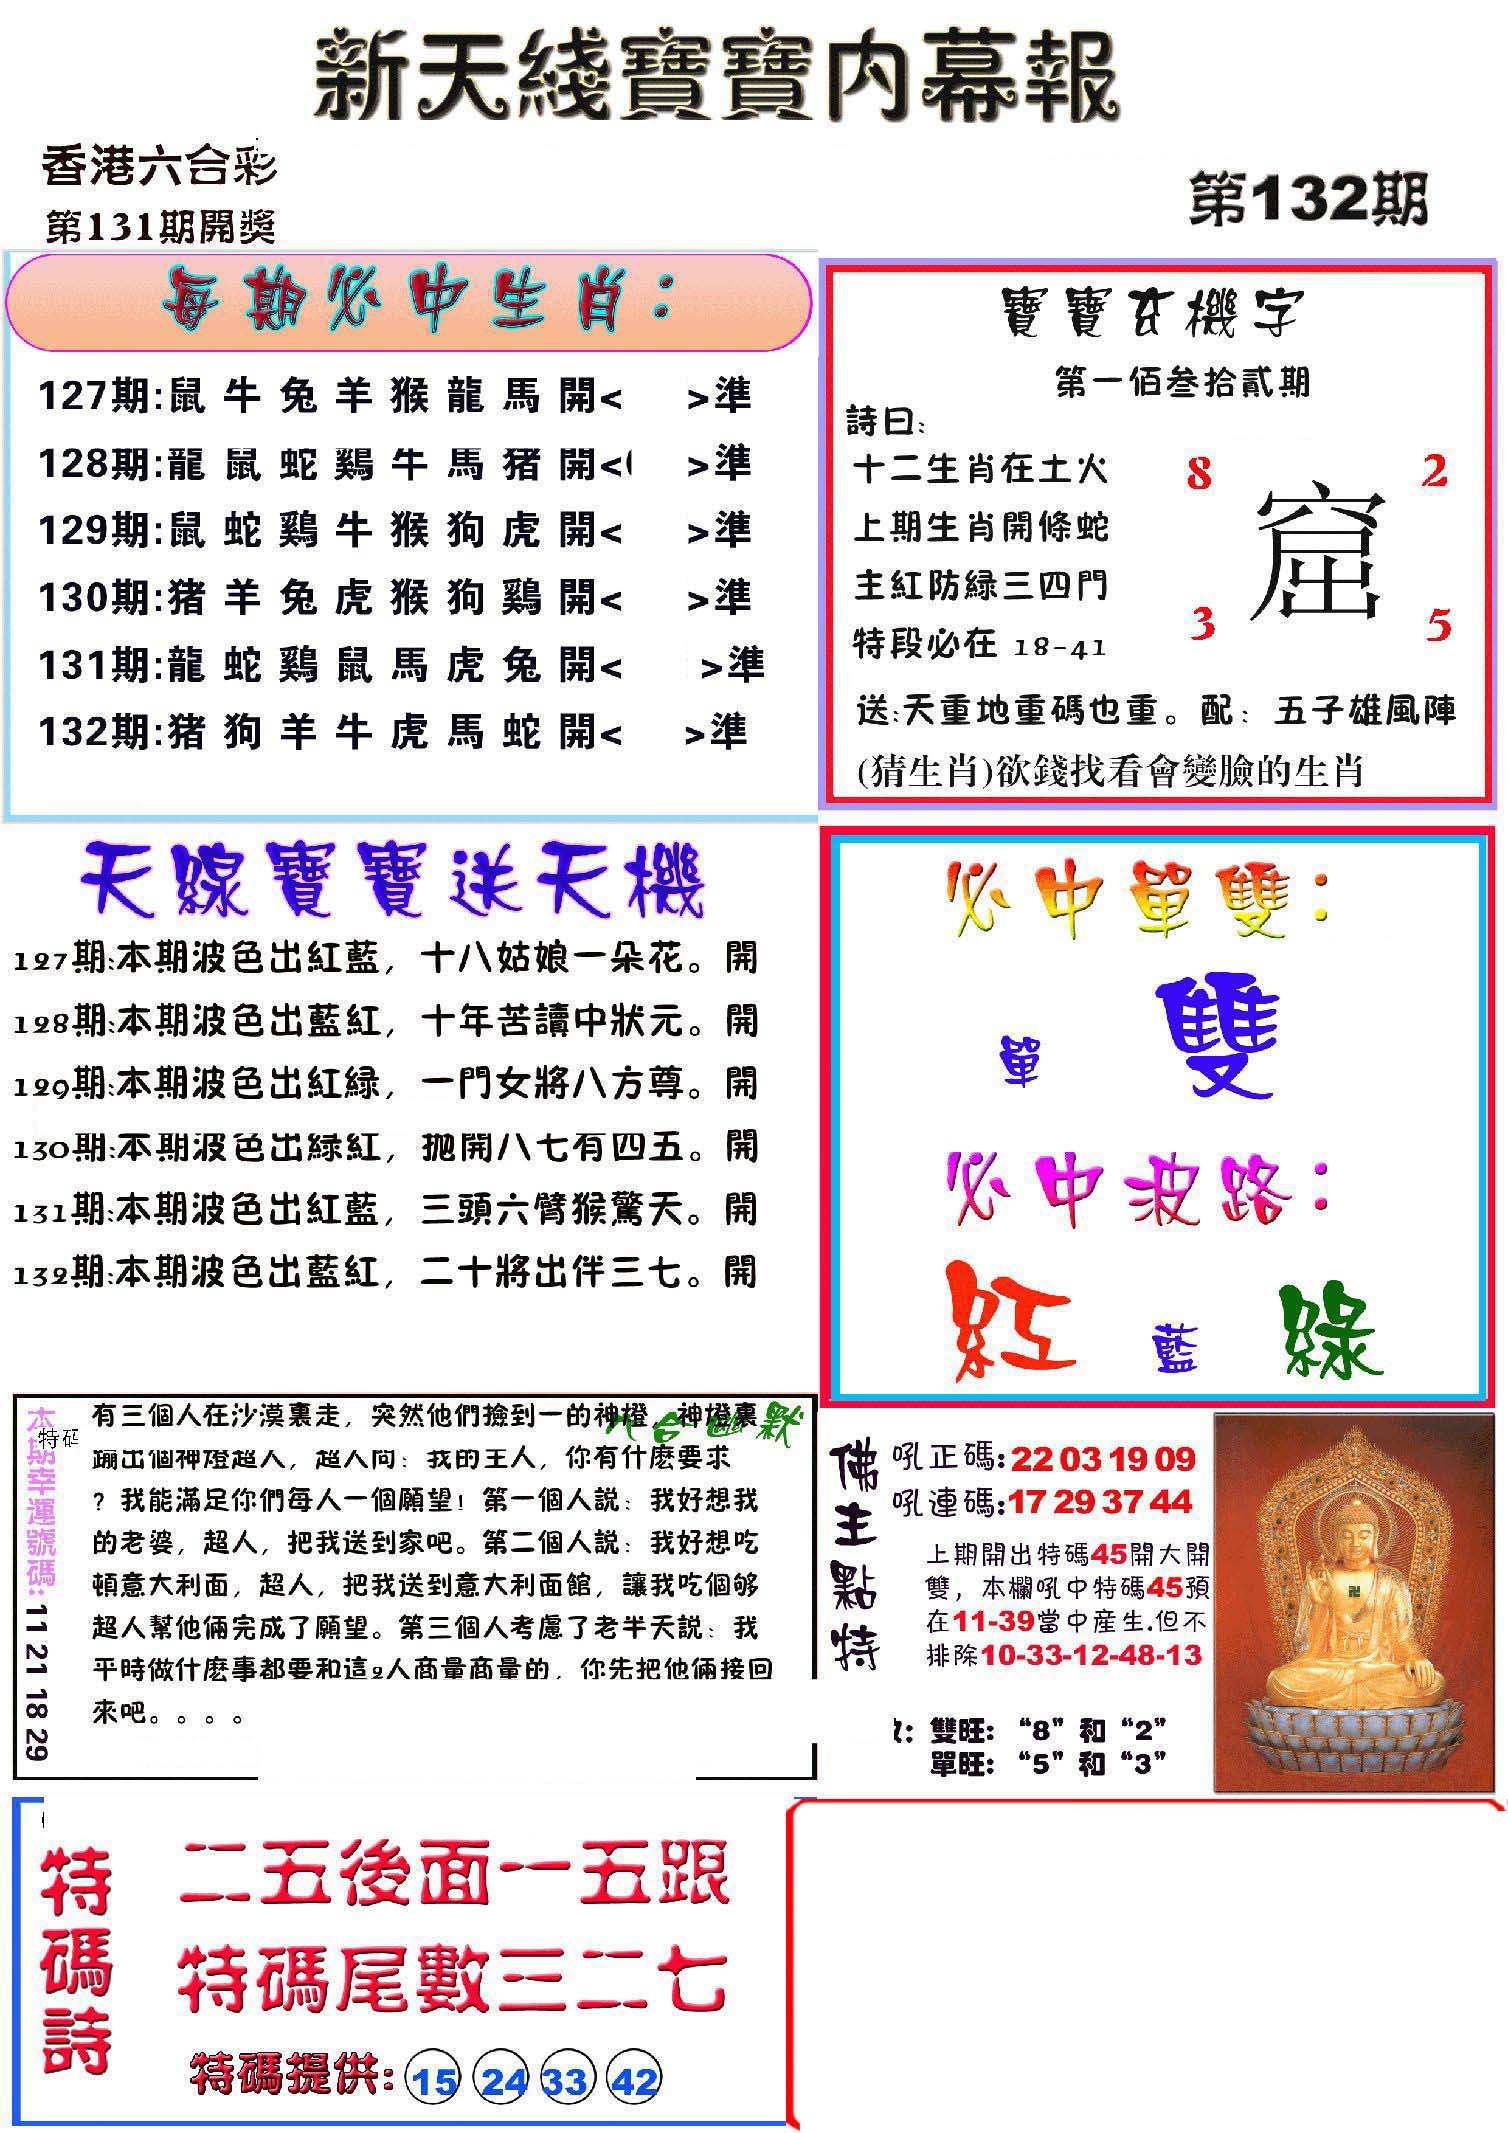 新天綫寶寶內幕報
香港六合彩
第131期開獎
第132期
每期必中生肖：
127期:鼠牛兔羊猴龍馬開< >準
128期:龍鼠蛇鷄牛馬猪開< >準
129期:鼠蛇鷄牛猴狗虎開< >準
130期:猪羊兔虎猴狗鷄開< >準
131期:龍蛇鷄鼠馬虎兔開< >準
132期:猪狗羊牛虎馬蛇開< >準
寶寶玄機字
第一佰叁拾貳期
詩曰:
十二生肖在土火
上期生肖開條蛇
主紅防緑三四門
特段必在 18-41
8 2
窟
3 5
送:天重地重碼也重。配：五子雄風陣
(猜生肖)欲錢找看會變臉的生肖
天線寶寶送天機
127期:本期波色出紅藍，十八姑娘一朵花。開
128期:本期波色出藍紅，十年苦讀中狀元。開
129期:本期波色出紅緑，一門女將八方尊。開
130期:本期波色出緑紅，拋開八七有四五。開
131期:本期波色出紅藍，三頭六臂猴驚天。開
132期:本期波色出藍紅，二十將出伴三七。開
必中單雙：
單 雙
必中波路：
紅 藍 綠
本期幸運號碼:11 21 18 29
特码
六合幽默
有三個人在沙漠裏走，突然他們撿到一的神燈，神燈裏
蹦出個神燈超人，超人问：我的主人，你有什麽要求
？我能滿足你們每人一個願望！第一個人説：我好想我
的老婆，超人，把我送到家吧。第二個人説：我好想吃
頓意大利面，超人，把我送到意大利面館，讓我吃個够
超人幫他倆完成了願望。第三個人考慮了老半天説：我
平時做什麽事都要和這2人商量商量的，你先把他倆接回
來吧。。。。
佛主點特
吼正碼:22 03 19 09
吼連碼:17 29 37 44
上期開出特碼45開大開
雙，本欄吼中特碼45預
在11-39當中産生.但不
排除10-33-12-48-13
：雙旺：“8”和“2”
單旺：“5”和“3”
特碼詩
二五後面一五跟
特碼尾數三二七
特碼提供: 15 24 33 42